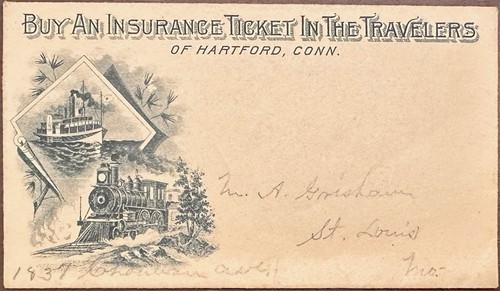 BUY AN INSURANCE TICKET IN THE TRAVELERS
OF HARTFORD, CONN.
M. A. Grisham
St. Louis
Mo.
1837 Chouteau